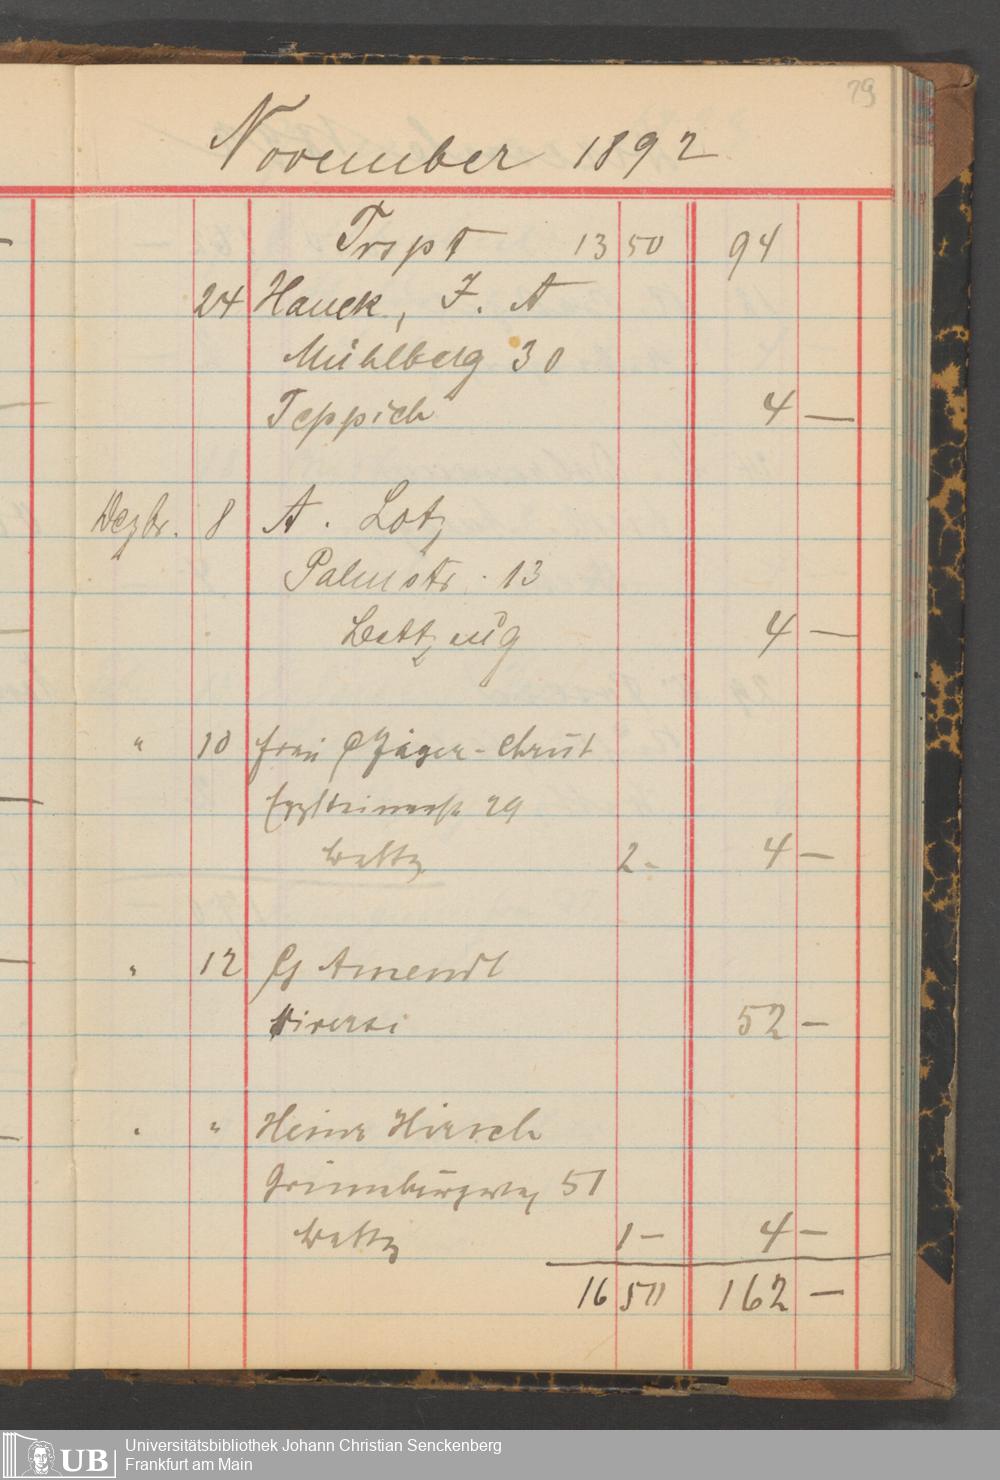 79
November 1892
Trspt 13 50 94
24 Hauck, F. A
Mühlberg 30
Teppich 4 —
Dezbr. 8 A. Lotz
Palmstr. 13
Bettzeug 4 —
" 10 Frau Jäger-Christ
29
Bettz 2 - 4 —
" 12 G Amendt
Diversi 52 —
" " Heinr Hirsch
Grüneburgweg 51
Bettz 1 — 4 —
16 50 162 —
UB Universitätsbibliothek Johann Christian Senckenberg
Frankfurt am Main